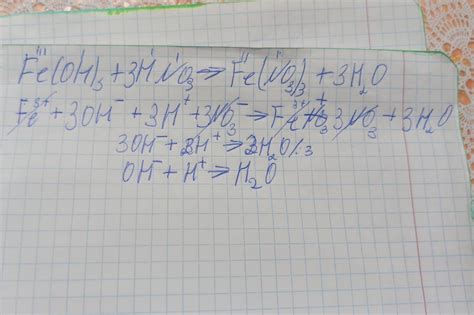 Fe(OH)₃ + 3HNO₃ → Fe(NO₃)₃ + 3H₂O
Fe³⁺ + 3OH⁻ + 3H⁺ + 3NO₃⁻ → Fe³⁺ + 3NO₃⁻ + 3H₂O
3OH⁻ + 3H⁺ → 3H₂O /:3
OH⁻ + H⁺ → H₂O